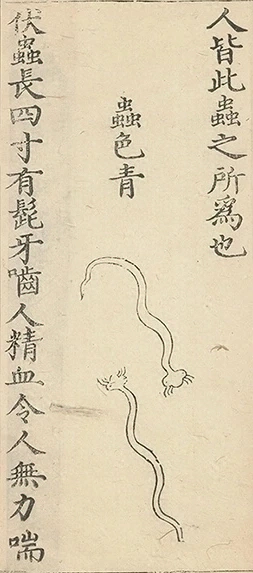 人皆此蟲之所爲也
蟲色青
伏蟲長四寸有髭牙嚙人精血令人無力喘